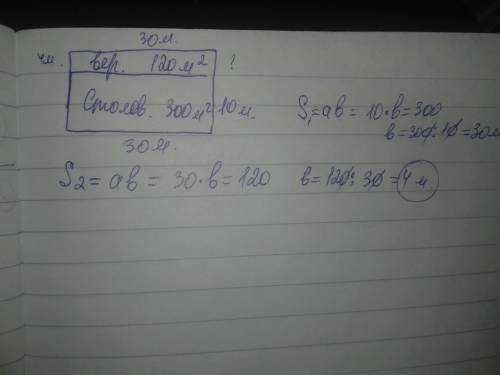 30м.
4м. вер. 120м² ?
Столов. 300м² 10м.
30м.
S₁=ab = 10·b=300
b=300:10=30м
S₂= ab = 30·b=120 b=120:30=4м